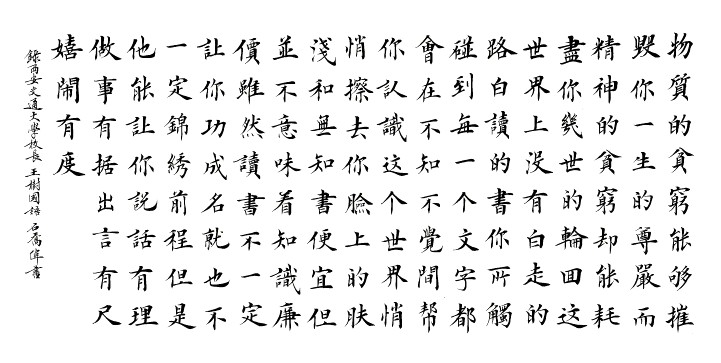 物質的貧窮能够摧
毁你一生的尊嚴而
精神的貧窮却能耗
盡你幾世的輪回这
世界上没有白走的
路白讀的書你所觸
碰到每一个文字都
會在不知不覺間帮
你认識这个世界悄
悄擦去你臉上的肤
淺和無知書便宜但
並不意味着知識廉
價雖然讀書不一定
让你功成名就也不
一定錦绣前程但是
他能让你説話有理
做事有据出言有尺
嬉鬧有度
錄西安交通大學校長王樹國語 石喬偉書